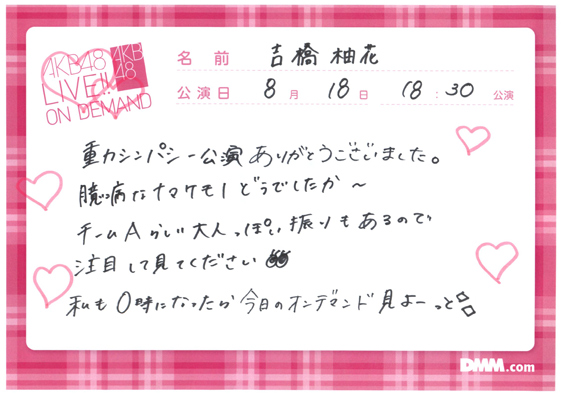 AKB48
LIVE!!
ON DEMAND
AKB
48
名前 吉橋 柚花
公演日 8月 18日 18:30 公演
重力シンパシー公演ありがとうございました。
臆病なナマケモノどうでしたか〜
チームAらしい大人っぽい振りもあるので
注目して見てください
私も0時になったら今日のオンデマンド見よーっと
DMM.com